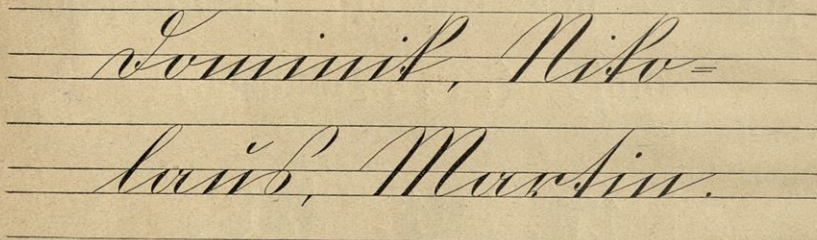 Dominik, Niko=
laus, Martin.